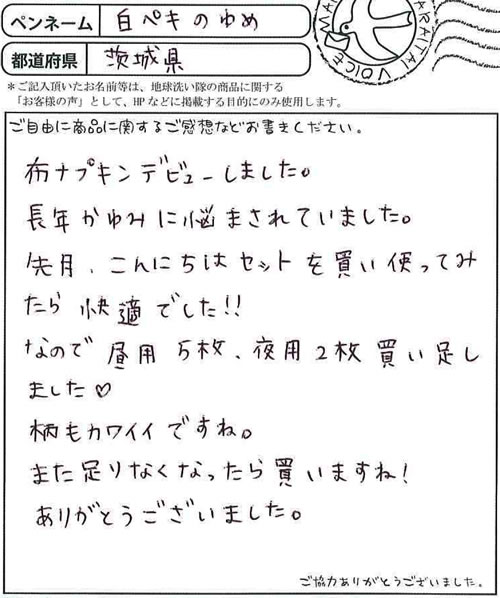 ペンネーム 白ペキのゆめ
都道府県 茨城県
＊ご記入頂いたお名前等は、地球洗い隊の商品に関する
「お客様の声」として、HPなどに掲載する目的にのみ使用します。
ご自由に商品に関するご感想などお書きください。
布ナプキンデビューしました。
長年かゆみに悩まされていました。
先月、こんにちはセットを買い使ってみ
たら快適でした!!
なので昼用5枚、夜用2枚買い足し
ました♡
柄もカワイイですね。
また足りなくなったら買いますね!
ありがとうございました。
ご協力ありがとうございました。
ARAITAI VOICE